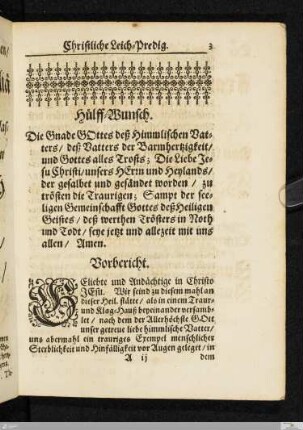 Christliche Leich/Predig. 3
Hülff/Wunsch.
Die Gnade GOttes deß Himmlischen Vat-
ters/ deß Vatters der Barmhertzigkeit/
und Gottes alles Trosts; Die Liebe Je-
su Christi/ unsers HErrn und Heylands/
der gesalbet und gesandet worden / zu
trösten die Traurigen; Sampt der see-
ligen Gemeinschafft Gottes deß Heiligen
Geistes / deß werthen Trösters in Noth
und Todt/ seye jetzt und allezeit mit uns
allen/ Amen.
Vorbericht.
GEliebte und Andächtige in Christo
JEsu. Wir seind zu diesem mahl an
dieser Heil. stätte/ als in einem Traur-
und Klag-Hauß beyeinander versamb-
let / nach dem der Allerhöchste GOtt
unser getreue liebe himmlische Vatter/
uns abermahl ein trauriges Exempel menschlicher
Sterblichkeit und Hinfälligkeit vor Augen geleget/ in
A ij dem